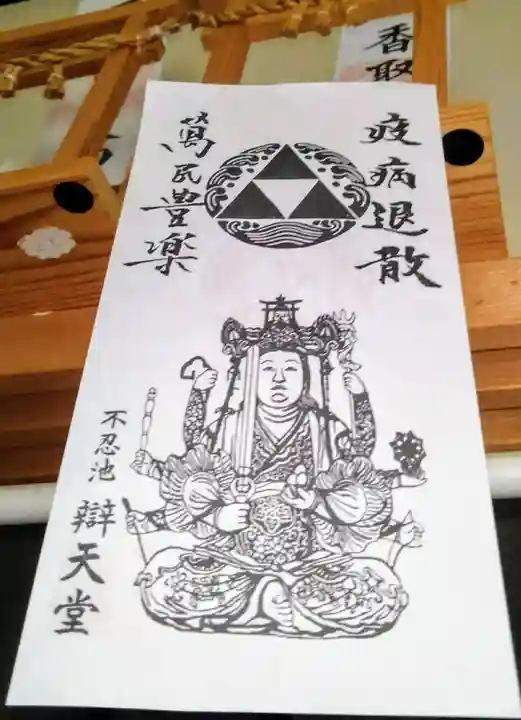 香取
疫病退散
萬民豊楽
不忍池
辯天堂